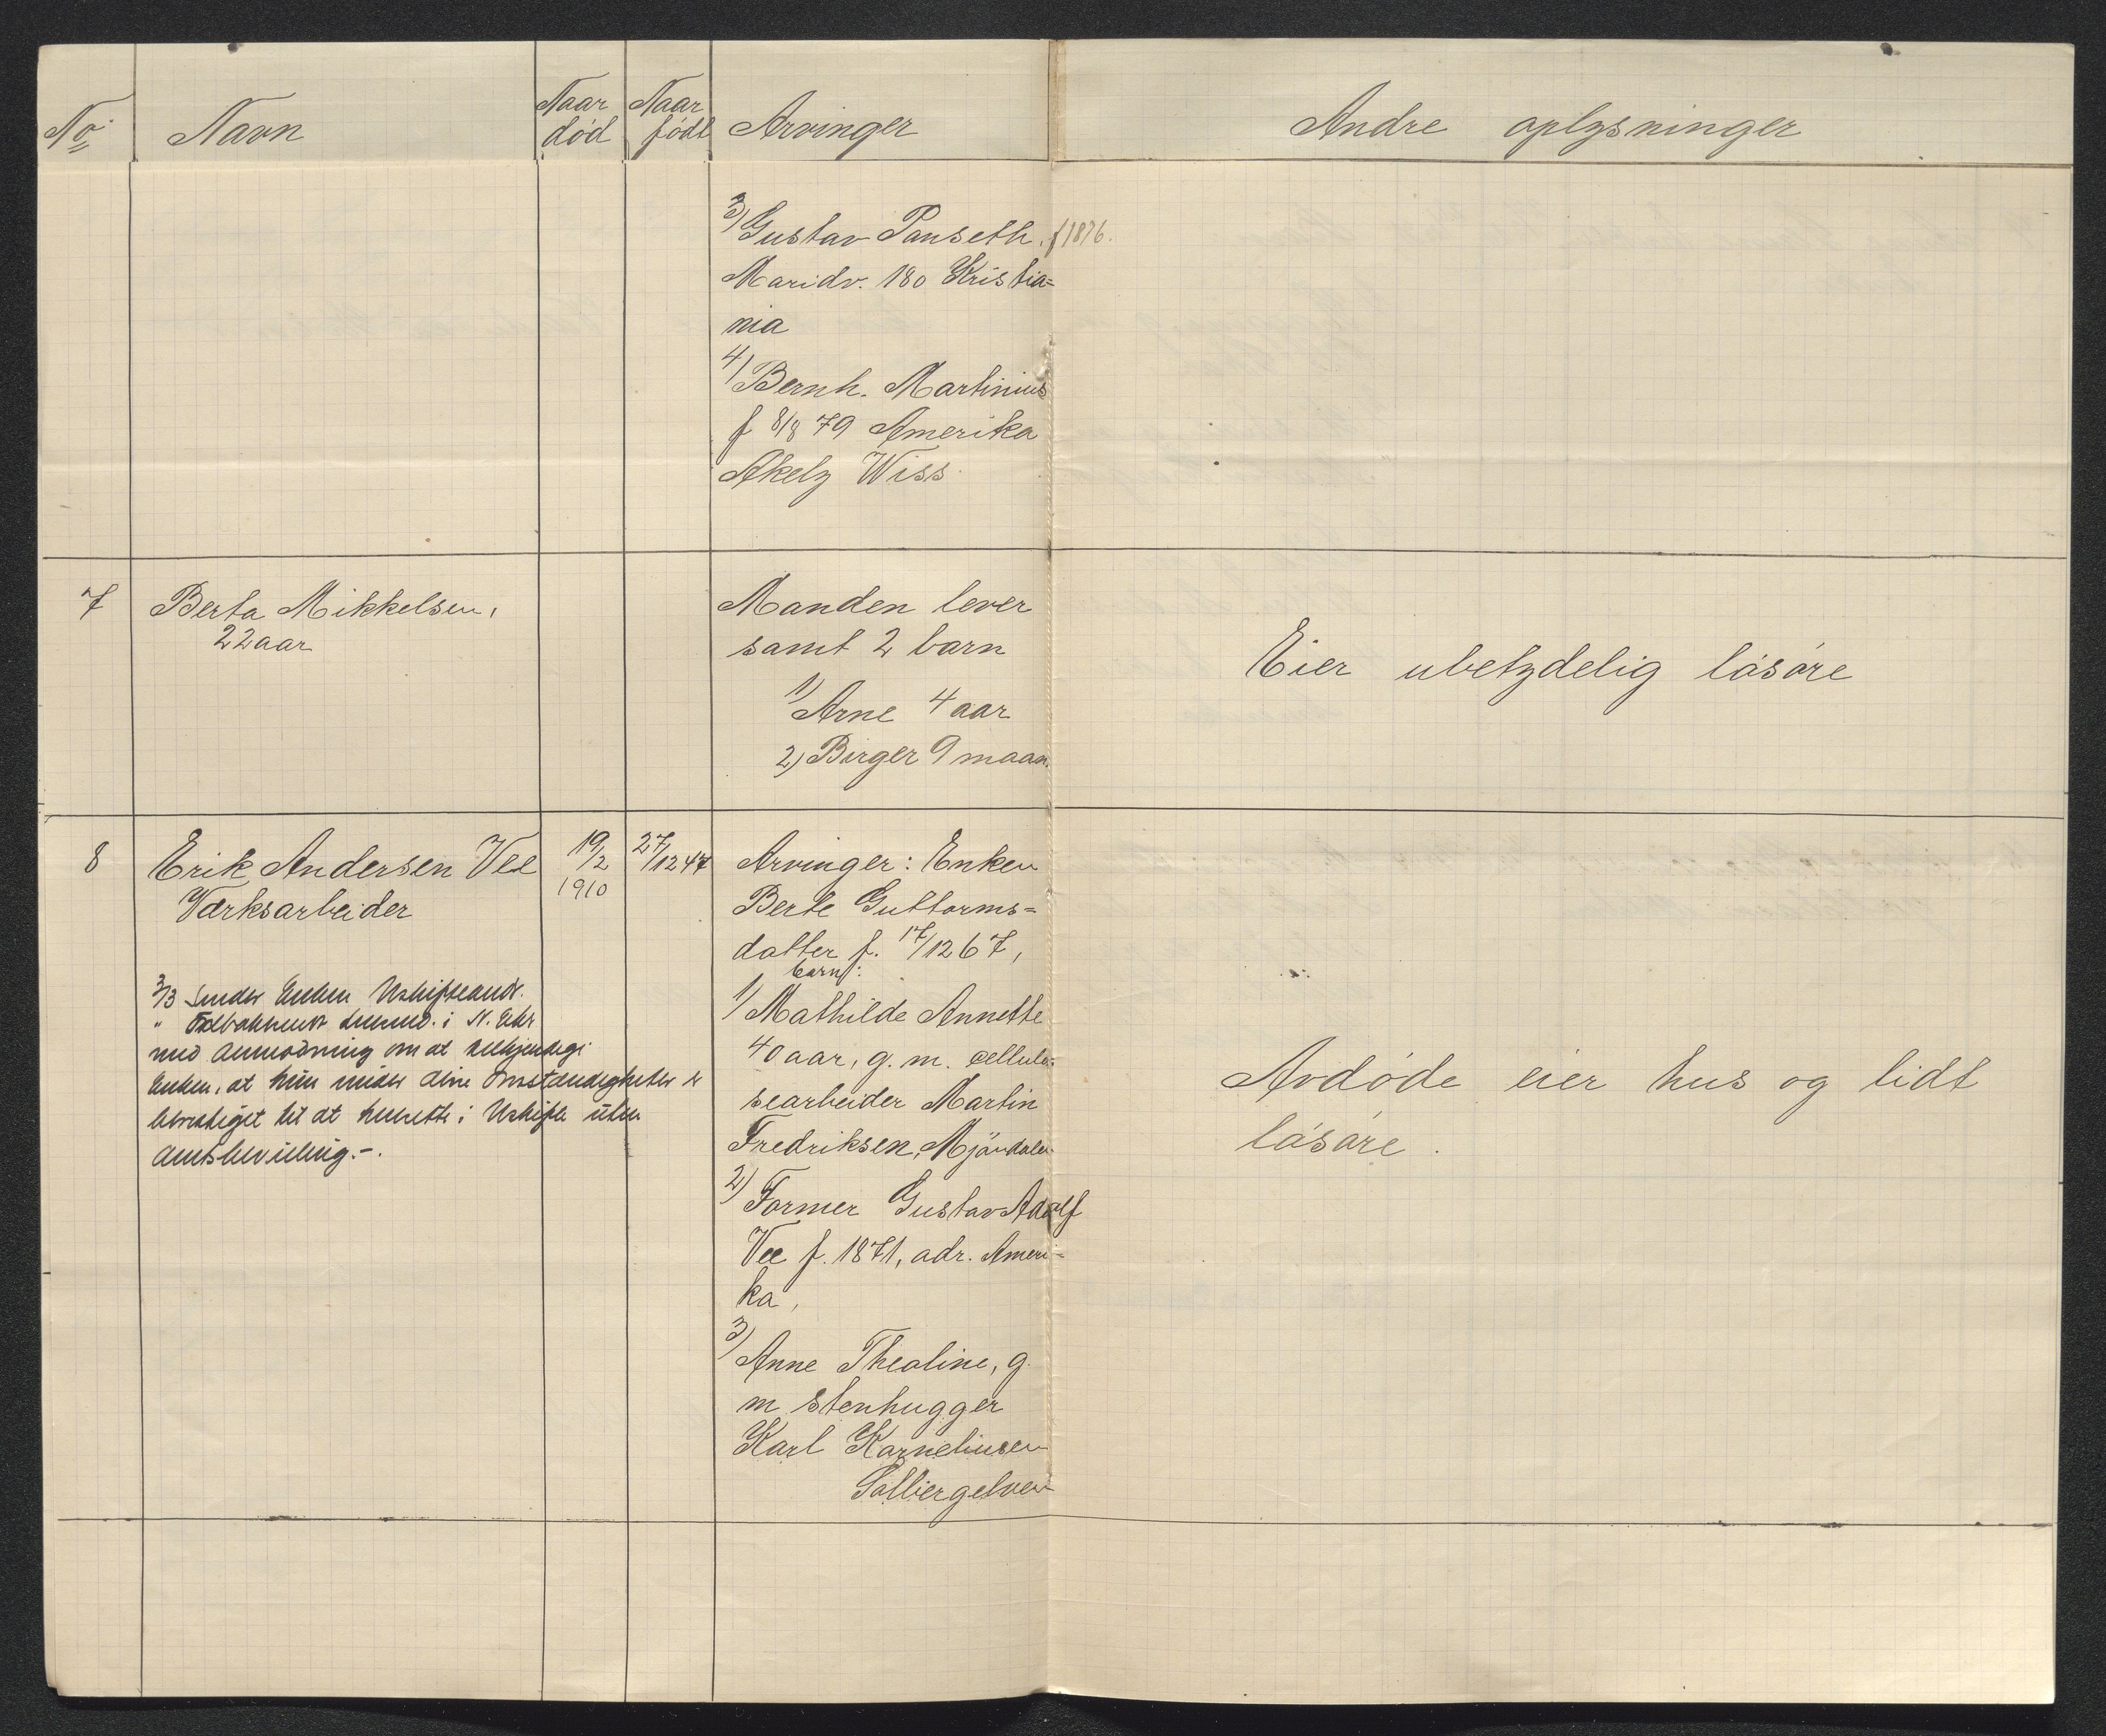 No. Navn Naar død Naar født Arvinger Andre oplysninger
3) Gustav Panseth. f 1876.
Maridv. 180 Kristia=
nia
4) Bernh. Martinius
f 8/8 79 Amerika
Akely Wiss.
7 Berta Mikkelsen,
22 aar
Manden lever
samt 2 barn
1) Arne 4 aar
2) Birger 9 maan.
Eier ubetydelig løsøre
8 Erik Andersen Vee
Værksarbeider
19/2
1910
27/12 47
3/3 Sender Enken Uskifteand.
" lensmd. i N. Eker
med anmodning om at
Enken, at hun under disse omstændigheter er
berettiget til at hensitte i Uskifte uten
amtsbevilling.-.
Arvinger: Enken
Berte Guttorms=
datter f. 17/12 67,
barn:
1) Mathilde Annette
40 aar, g. m. cellulo=
searbeider Martin
Fredriksen, Mjøndalen
2) Former Gustav Adolf
Vee f. 1871, adr. Ameri=
ka,
3) Anne Thealine, g.
m stenhugger
Karl Karneliusen
Solbergelven
Avdøde eier hus og lidt
løsøre.